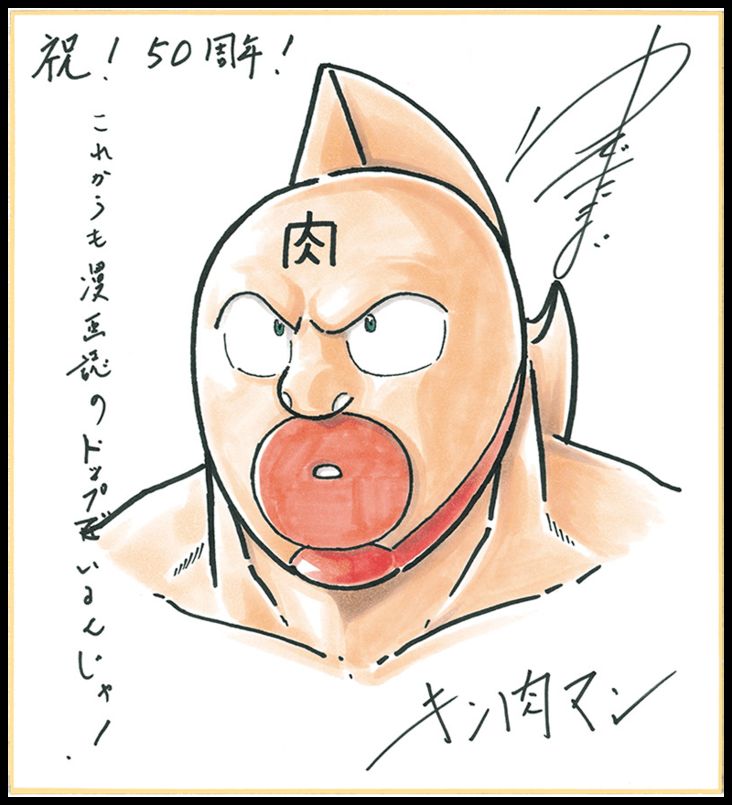 祝！50周年！
ゆでたまご
これからも漫画誌のトップでいるんじゃ！
肉
キン肉マン